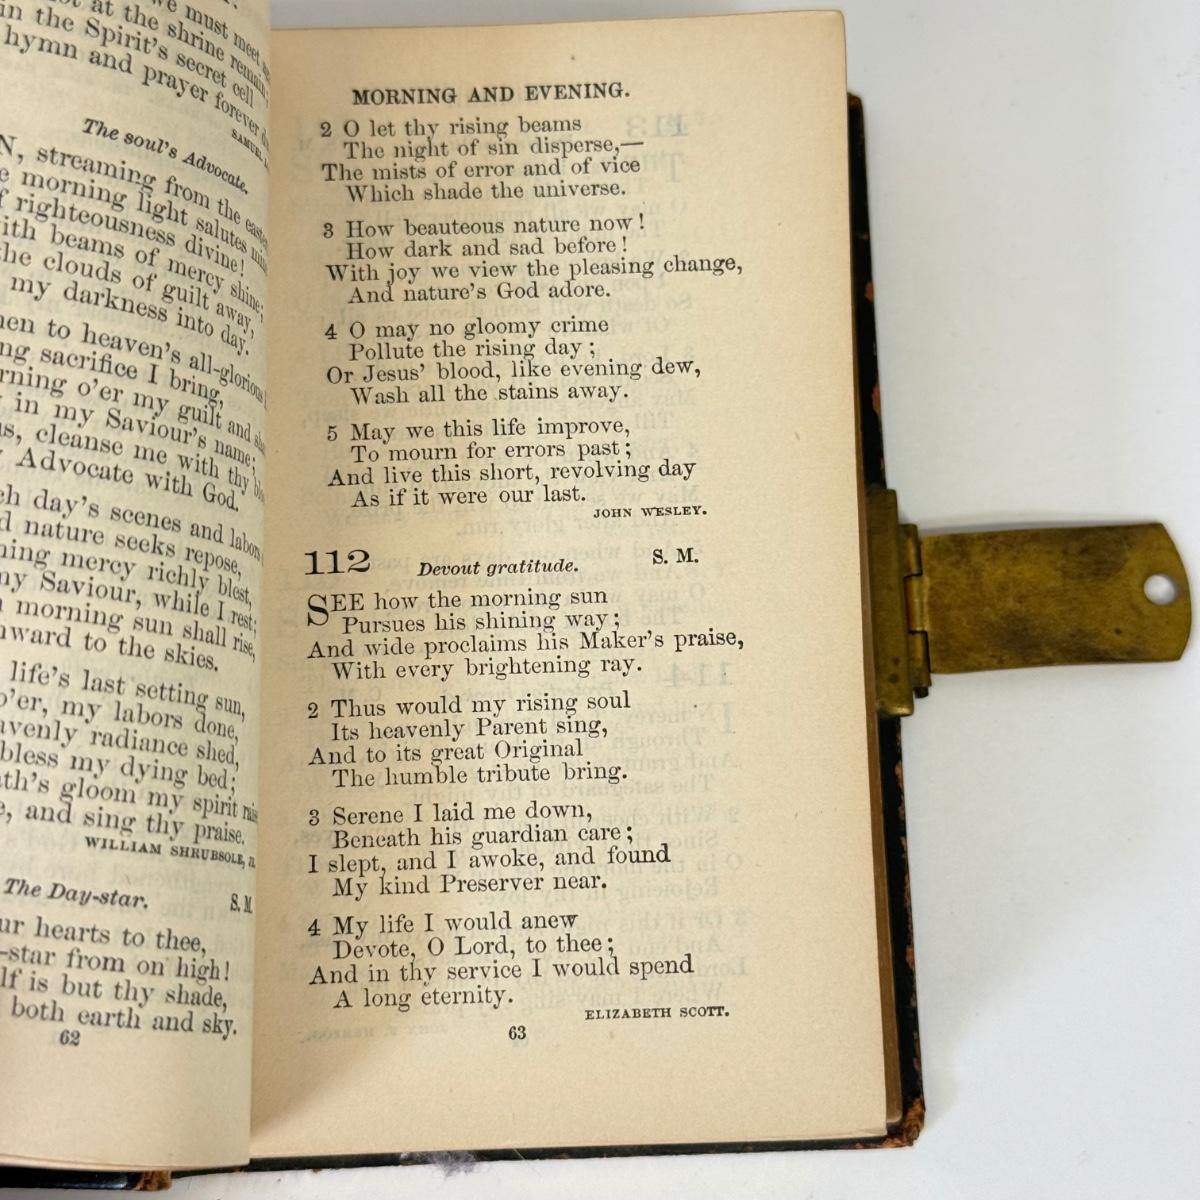 we must meet
at the shrine remain;
in the Spirit's secret cell
hymn and prayer forever
SAMUEL
The soul's Advocate.
streaming from the
morning light salutes
righteousness divine!
with beams of mercy shine;
the clouds of guilt away,
my darkness into day.
to heaven's all-glorious
sacrifice I bring,
o'er my guilt and
in my Saviour's name;
cleanse me with thy
Advocate with God.
day's scenes and labors
nature seeks repose,
mercy richly blest,
my Saviour, while I rest;
morning sun shall rise,
to the skies.
life's last setting sun,
o'er, my labors done,
radiance shed,
bless my dying bed;
gloom my spirit
and sing thy praise.
WILLIAM SHRUBSOLE,
The Day-star. S. M.
hearts to thee,
-star from on high!
is but thy shade,
both earth and sky.
62
MORNING AND EVENING.
2 O let thy rising beams
The night of sin disperse,—
The mists of error and of vice
Which shade the universe.
3 How beauteous nature now!
How dark and sad before!
With joy we view the pleasing change,
And nature's God adore.
4 O may no gloomy crime
Pollute the rising day;
Or Jesus' blood, like evening dew,
Wash all the stains away.
5 May we this life improve,
To mourn for errors past;
And live this short, revolving day
As if it were our last.
JOHN WESLEY.
112 Devout gratitude. S. M.
SEE how the morning sun
Pursues his shining way;
And wide proclaims his Maker's praise,
With every brightening ray.
2 Thus would my rising soul
Its heavenly Parent sing,
And to its great Original
The humble tribute bring.
3 Serene I laid me down,
Beneath his guardian care;
I slept, and I awoke, and found
My kind Preserver near.
4 My life I would anew
Devote, O Lord, to thee;
And in thy service I would spend
A long eternity.
ELIZABETH SCOTT.
63